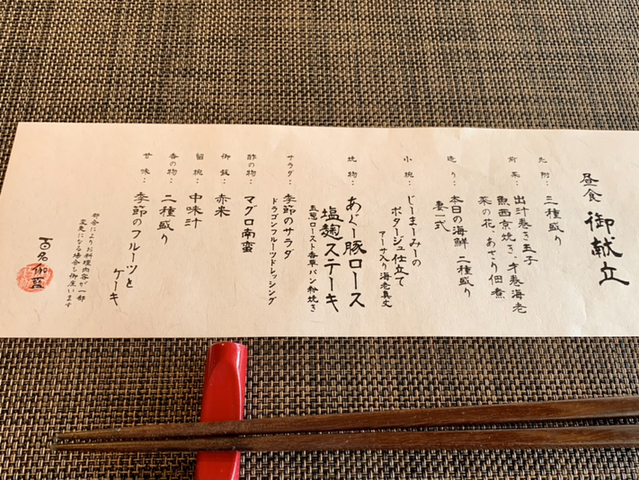 昼食 御献立
先附： 三種盛り
前菜： 出汁巻き玉子
魚西京焼き、才巻海老
菜の花、あさり佃煮
造り： 本日の海鮮 二種盛り
妻一式
小椀： じーまーみーの
ポタージュ仕立て
アーサ入り海老真丈
焼物： あぐー豚ロース
塩麹ステーキ
玉葱ロースト香草パン粉焼き
サラダ： 季節のサラダ
ドラゴンフルーツドレッシング
酢の物： マグロ南蛮
御飯： 赤米
留椀： 中味汁
香の物： 二種盛り
甘味： 季節のフルーツと
ケーキ
都合によりお料理内容が一部
変更になる場合も御座います
百名伽藍